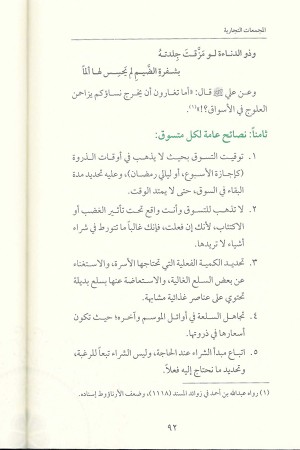 المجمعات التجارية
وذو الدناءة لو مَزَّقتَ جِلدتهُ
بشفرةِ الضَّيمِ لم يَحِسَّ لها ألمًا
وعن علي ﷺ قال: «أما تغارون أن يخرج نساؤكم يزاحمن
العلوج في الأسواق؟!»(١).
ثامنًا: نصائح عامة لكل متسوق:
١. توقيت التسوق بحيث لا يذهب في أوقات الذروة
(كإجازة الأسبوع، أو ليالي رمضان)، وعليه تحديد مدة
البقاء في السوق، حتى لا يمتد الوقت.
٢. لا تذهب للتسوق وأنت واقع تحت تأثير الغضب أو
الاكتئاب، لأنك إن فعلت، فإنك غالبًا ما تتورط في شراء
أشياء لا تريدها.
٣. تحديد الكمية الفعلية التي تحتاجها الأسرة، والاستغناء
عن بعض السلع الغالية، والاستعاضة عنها بسلع بديلة
تحتوي على عناصر غذائية مشابهة.
٤. تجاهل السلعة في أوائل الموسم وآخره؛ حيث تكون
أسعارها في ذروتها.
٥. اتباع مبدأ الشراء عند الحاجة، وليس الشراء تبعًا للرغبة،
وتحديد ما نحتاج إليه فعلًا.
(١) رواه عبدالله بن أحمد في زوائد المسند (١١١٨)، وضعف الأرناؤوط إسناده.
٩٢